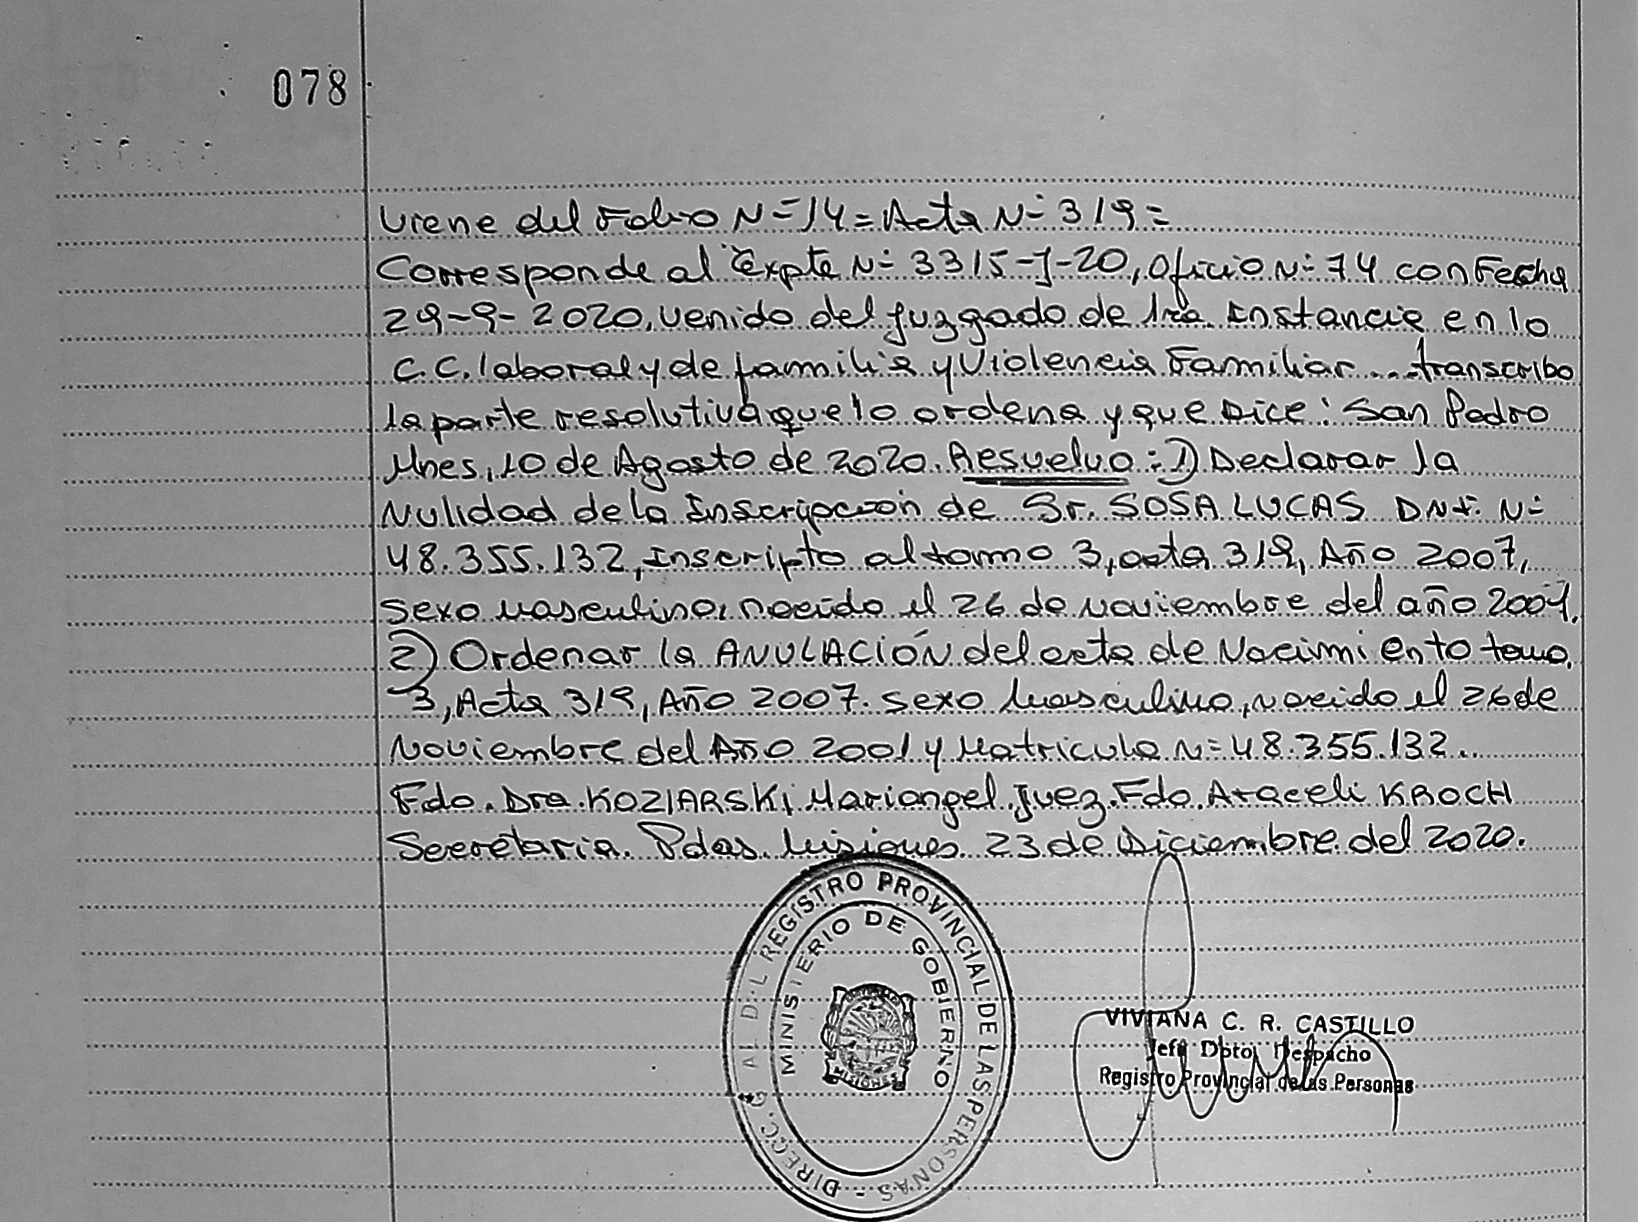 078
Viene del Folio N=14= Acta N= 319=
Corresponde al Expte N= 3315-J-20, Oficio N= 74 con Fecha
29-9-2020, venido del Juzgado de 1ra. Instancia en lo
C.C. laboral y de familia y Violencia Familiar... transcribo
la parte resolutiva que lo ordena y que Dice: San Pedro
Mnes, 10 de Agosto de 2020. Resuelvo: 1) Declarar la
Nulidad de la Inscripción de Sr. SOSA LUCAS DNI. N=
48.355.132, Inscripto al tomo 3, acta 319, Año 2007,
sexo masculino, nacido el 26 de noviembre del año 2001.
2) Ordenar la ANULACIÓN del acta de Nacimiento tomo.
3, Acta 319, Año 2007. sexo Masculino, nacido el 26 de
Noviembre del Año 2001 y Matricula N= 48.355.132..
Fdo. Dra. KOZIARSKI Mariangel. Juez. Fdo. Araceli KROCH
Secretaria. Pdas. Misiones. 23 de Diciembre del 2020.
DIRECC. G AL D L REGISTRO PROVINCIAL DE LAS PERSONAS
MINISTERIO DE GOBIERNO
MISIONES
VIVIANA C. R. CASTILLO
Jefe Dpto. Despacho
Registro Provincial de las Personas